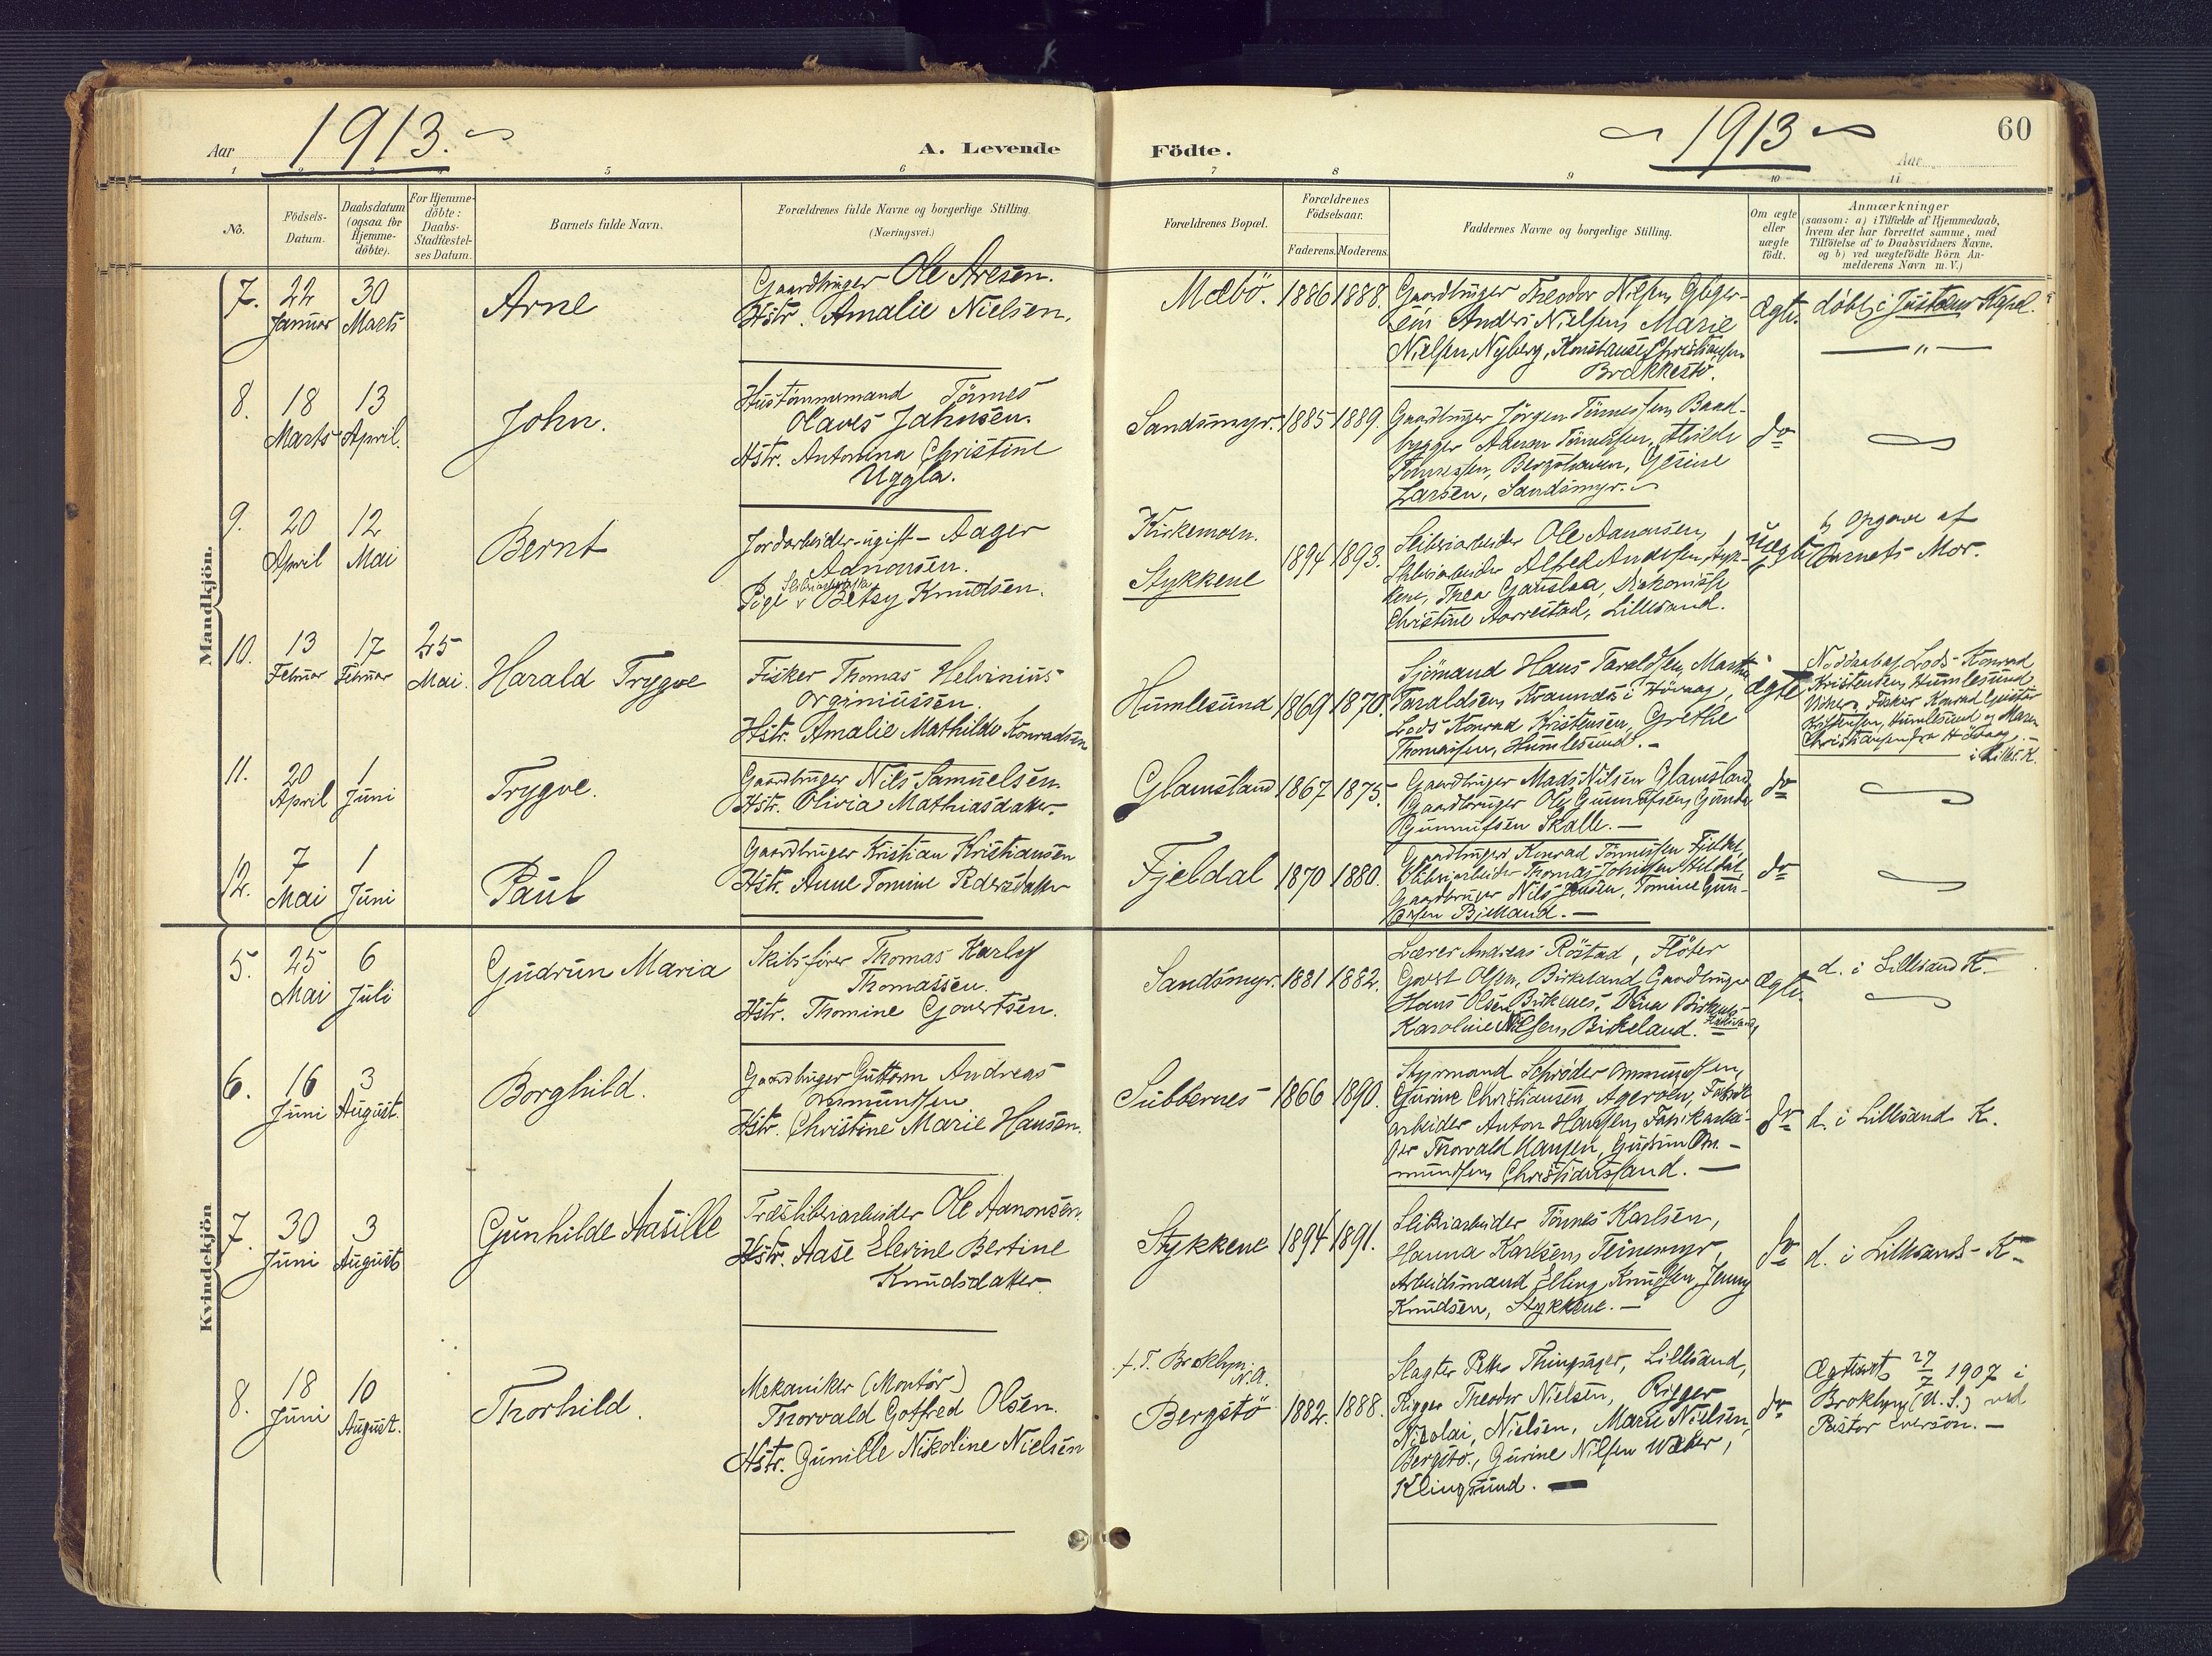 Aar 1913.
A. Levende Födte.
1913
Aar
60
1 2 3 4 5 6 7 8 9 10 11
No.
Födsels-
Datum.
Daabsdatum
(ogsaa for
Hjemme-
döbte).
For Hjemme-
döbte:
Daabs-
Stadfæstel-
ses Datum.
Barnets fulde Navn.
Forældrenes fulde Navne og borgerlige Stilling.
(Næringsvei.)
Forældrenes Bopæl.
Forældrenes
Födselsaar.
Faderens.
Moderens.
Faddernes Navne og borgerlige Stilling.
Om ægte
eller
uægte
født.
Anmærkninger
(saasom: a) i Tilfælde af Hjemmedaab,
hvem der har forrettet samme, med
Tilföielse af to Daabsvidners Navne,
og b) ved uægtefödte Börn An-
melderens Navn m. V.)
Mandkjön.
7.
22
Januar
30
Marts
Arne
Gaardbruger Ole Aresen.
Hstr. Amalie Nielsen.
Mæbö.
1886
1888.
Gaardbruger Theodor Nilsen,
Anders Nielsen, Marie
Nielsen, Nyberg, Konstanse Christiansen
Brækkestö.
Ægte.
döbt i Justöens Kapel.
8.
18
Marts
13
April.
John.
Hustömmermand Tönnes
Olaves Jahnsen.
Hstr. Antonina Christine
Uggla.
Sandsmyr.
1885
1889.
Gaardbruger Jörgen Tönnessen, Baad-
bygger Tönnessen,
Tönnessen, Bergshaven, Gesine
Larsen, Sandsmyr.
do
9.
20
April
12
Mai
Bernt
Jordarbeider-ugift- Aager
Aanonsen.
Pige Betsy Knudsen.
Kirkemoen.
Stykkene
1894
1893.
Sliberiarbeider Ole Aanonsen,
Sliberiarbeider Alfred Andersen, Styk-
kene, Thea Diakonisse
Christine Aarrestad, Lillesand.
Uægte
Opgave af
Barnets Mor.
10.
13
Februar
17
Februar
25
Mai.
Harald Trygve
Fisker Thomas Helvinius
Orginiussen.
Hstr. Amalie Mathilde Konradsen
Humlesund
1869
1870.
Sjömand Hans Taraldsen, Marthe
Taraldsen, i Hövaag,
Lods Konrad Kristensen, Grethe
Thomassen, Humlesund.
ægte
Nöddaab af Lods Konrad
Kristensen, Humlesund
Vidner: Fisker Konrad
Humlesund og Maren
Christiansen fra Hövaag.
i Lills. K.
11.
20
April
1
Juni
Trygve.
Gaardbruger Nils Samuelsen
Hstr. Olivia Mathiasdatter.
Glamsland
1867
1875.
Gaardbruger Mads Nilsen Glamsland,
Gaardbruger Ole Gunnufsen, Gunda
Gunnufsen Skalle.
do
12.
7
Mai
1
Juni
Paul
Gaardbruger Kristian Kristiansen
Hstr. Anne Tomine Pedersdatter
Fjeldal
1870
1880.
Gaardbruger Konrad Tönnessen Fjeldal,
Sliberiarbeider Thomas Johnsen
Gaardbruger Nils Jensen, Tomine Gun-
Bjelland.
do
Kvindekjön
5.
25
Mai
6
Juli
Gudrun Maria
Skibsförer Thomas Karley
Thomassen.
Hstr. Thomine Govertsen.
Sandsmyr.
1881
1882.
Lærer Andreas Röstad, Flöter
Govert Olsen, Birkeland, Gaardbruger
Hans Olsen Birkenes,
Karoline Nilsen, Birkeland.
Ægte.
d. i Lillesand K.
6.
16
Juni
3
August.
Borghild.
Gaardbruger Guttorm Andreas
Ommundsen
Hstr. Christine Marie Hansen.
Sübbernes
1866
1890.
Styrmand Schröder Ommundsen,
Gurine Christiansen, Ageröen, Fabrik-
arbeider Anton Hansen, Fabrikarbei-
der Thorvald Hansen, Gudrun Om-
mundsen, Christianssand.
do
d. i Lillesand K.
7.
30
Juni
3
August
Gunhilde Aasille
Træsliberiarbeider Ole Aanonsen.
Hstr. Aase Elevine Bertine
Knudsdatter.
Stykkene
1894
1891.
Sliberiarbeider Tönnes Karlsen,
Hanna Karlsen, Teinemyr,
Arbeidsmand Elling Knudsen, Jenny
Knudsen, Stykkene.
do
d. i Lillesands K.
8.
18
Juni
10
August.
Thorhild.
Mekaniker (Montör)
Thorvald Gotfred Olsen.
Hstr. Gunille Nikoline Nielsen
f. T. Broklyn
N. A.
Bergstö
1882.
1888.
Slagter Petter Lillesand,
Rigger Theodor Nielsen, Rigger
Nicolai Nielsen, Marie Nielsen,
Bergstö, Gurine Nilsen
Klingsund.
do
Ægteviet 27/7 1907 i
Broklyn (A. S.) ved
Pastor Everson.